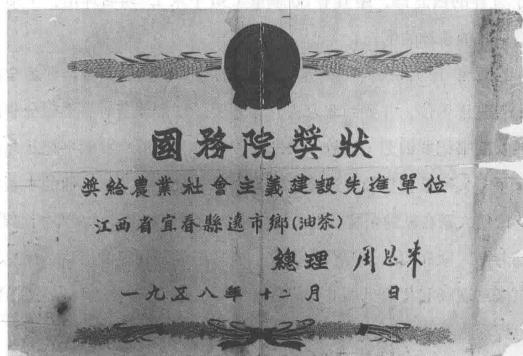 國務院獎狀
獎給農業社會主義建設先進單位
江西省宜春縣遠市鄉(油茶)
總理 周恩来
一九五八年十二月 日